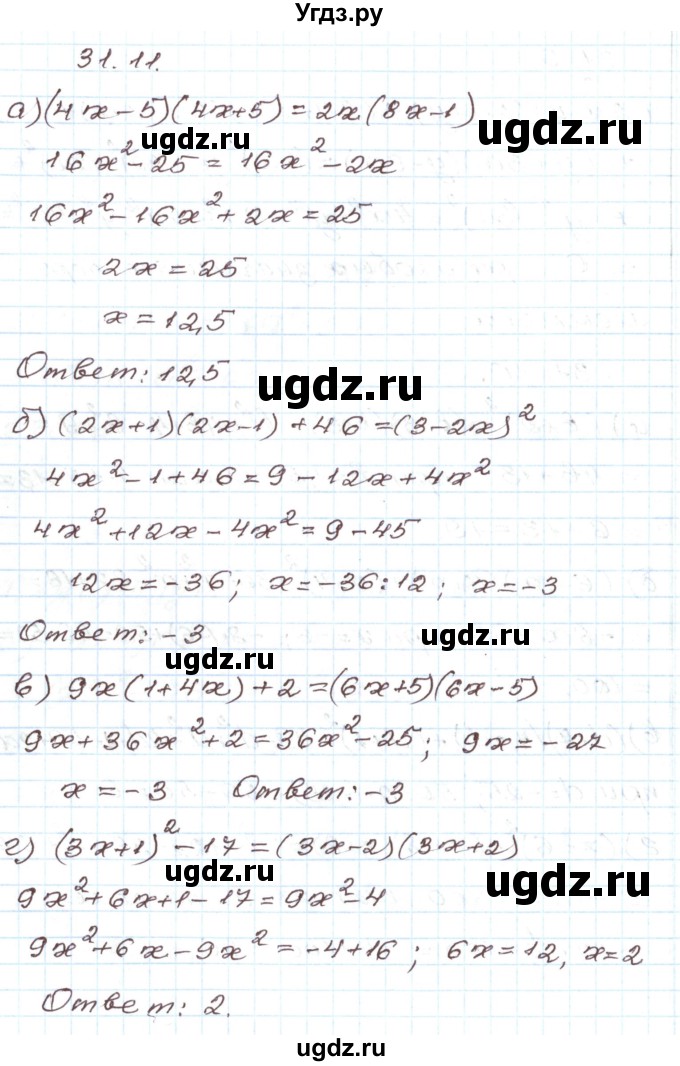 Угдз.ру
31.11.
а) (4x-5)(4x+5) = 2x(8x-1)
ugdz.ru
ugdz.ru
16x²-25 = 16x²-2x
16x²-16x²+2x=25
2x=25
x=12,5
Ответ: 12,5
ugdz.ru
б) (2x+1)(2x-1)+46=(3-2x)²
4x²-1+46=9-12x+4x²
4x²+12x-4x²=9-45
12x=-36; x=-36:12; x=-3
Ответ: -3
ugdz.ru
ugdz.ru
в) 9x(1+4x)+2=(6x+5)(6x-5)
9x+36x²+2=36x²-25; 9x=-27
x=-3 Ответ: -3
г) (3x+1)²-17=(3x-2)(3x+2)
ugdz.ru
ugdz.ru
9x²+6x+1-17=9x²-4
9x²+6x-9x²=-4+16; 6x=12, x=2
Ответ: 2.
ugdz.ru